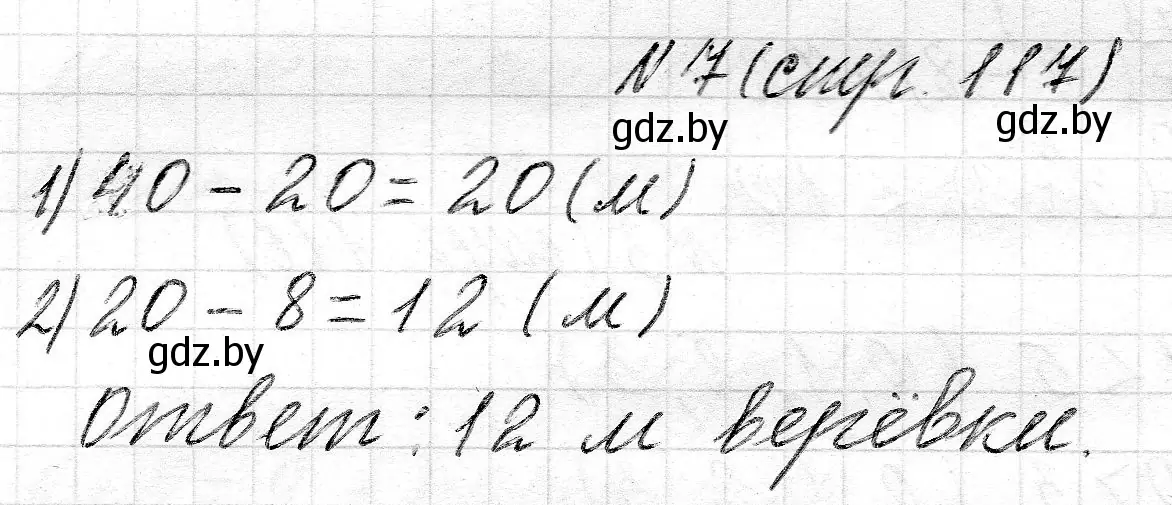 N 7 (стр. 117)
gdz.by gdz.by
1) 40 - 20 = 20 (м)
2) 20 - 8 = 12 (м)
gdz.by
Ответ: 12 м верёвки.